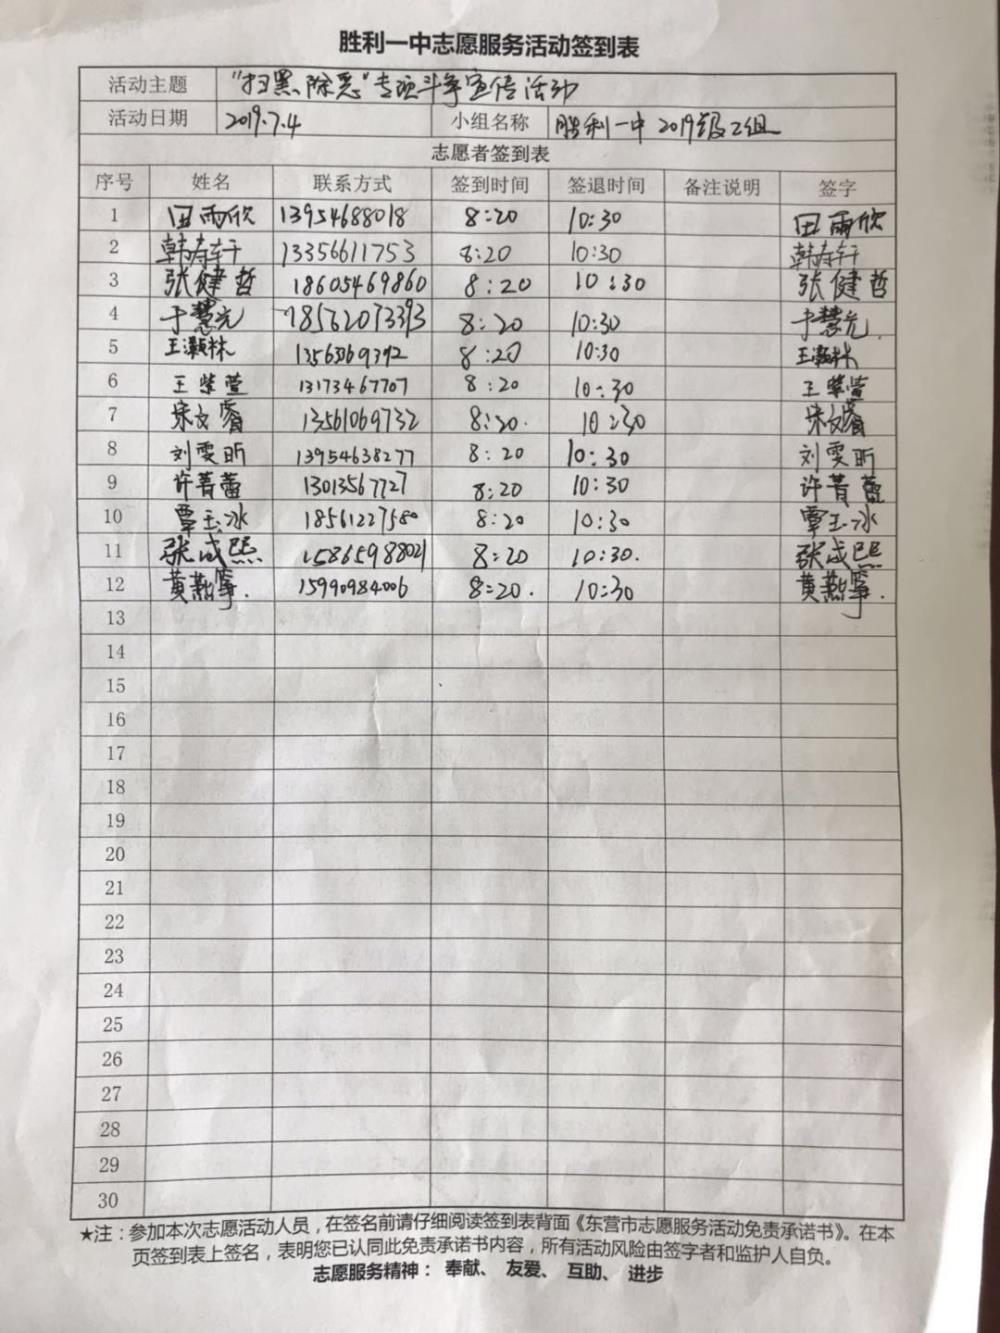 胜利一中志愿服务活动签到表
活动主题 "扫黑除恶"专项斗争宣传活动
活动日期 2019.7.4 小组名称 胜利一中2019级2组
志愿者签到表
序号 姓名 联系方式 签到时间 签退时间 备注说明 签字
1 田雨欣 13954688018 8:20 10:30 田雨欣
2 韩寿轩 13356611753 8:20 10:30 韩寿轩
3 张健哲 18605469860 8:20 10:30 张健哲
4 于慧光 18562073393 8:20 10:30 于慧光
5 王灏林 8:20 10:30 王灏林
6 王紫萱 13173467707 8:20 10:30 王紫萱
7 宋文睿 13561069732 8:20. 10:30 宋文睿
8 刘雯昕 13954638277 8:20 10:30 刘雯昕
9 许菁蕾 13013567727 8:20 10:30 许菁蕾
10 覃玉冰 18561227580 8:20 10:30 覃玉冰
11 张成熙 15865988021 8:20 10:30. 张成熙
12 黄 15990984006 8:20. 10:30 黄
13
14
15
16
17
18
19
20
21
22
23
24
25
26
27
28
29
30
★注：参加本次志愿活动人员，在签名前请仔细阅读签到表背面《东营市志愿服务活动免责承诺书》。在本
页签到表上签名，表明您已认同此免责承诺书内容，所有活动风险由签字者和监护人自负。
志愿服务精神： 奉献、 友爱、 互助、 进步